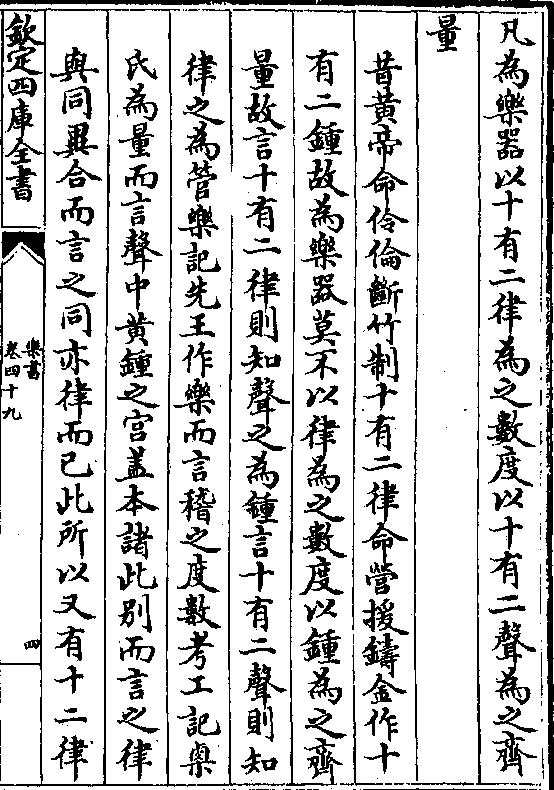 凡為樂器以十有二律為之數度以十有二聲為之齊
量
昔黃帝命伶倫斷竹制十有二律命營援鑄金作十
有二鍾故為樂器莫不以律為之數度以鍾為之齊
量故言十有二律則知聲之為鍾言十有二聲則知
律之為管樂記先王作樂而言稽之度數考工記㮚
氏為量而言聲中黃鍾之宮蓋本諸此别而言之律
與同異合而言之同亦律而已此所以又有十二律
欽定四庫全書
樂書
卷四十九
四